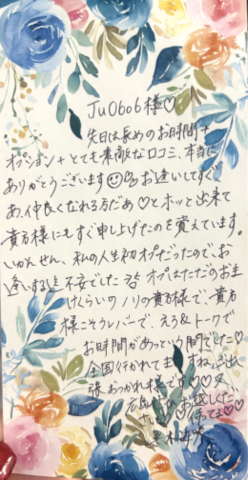 Ju0606様♡
先日は長めのお時間+
オプション+とても素敵な口コミ、本当に
ありがとうございます お逢いしてすぐ
あ、仲良くなれる方だあ♡とホッと出来て
貴方様にもすぐ申し上げたのを覚えています。
いかんせん、私の人生初オプだったので、お
逢いするまで不安でした オプはただのお主
けんらいのノリの貴方様で、貴方
様こそクレバーで、えろ&トークで
お時間があっという間でした♡
全国行かれてますね、
張おつかれ様です♡♡又、
広島に お越しくだ
さい♡ 待ってる♡♡